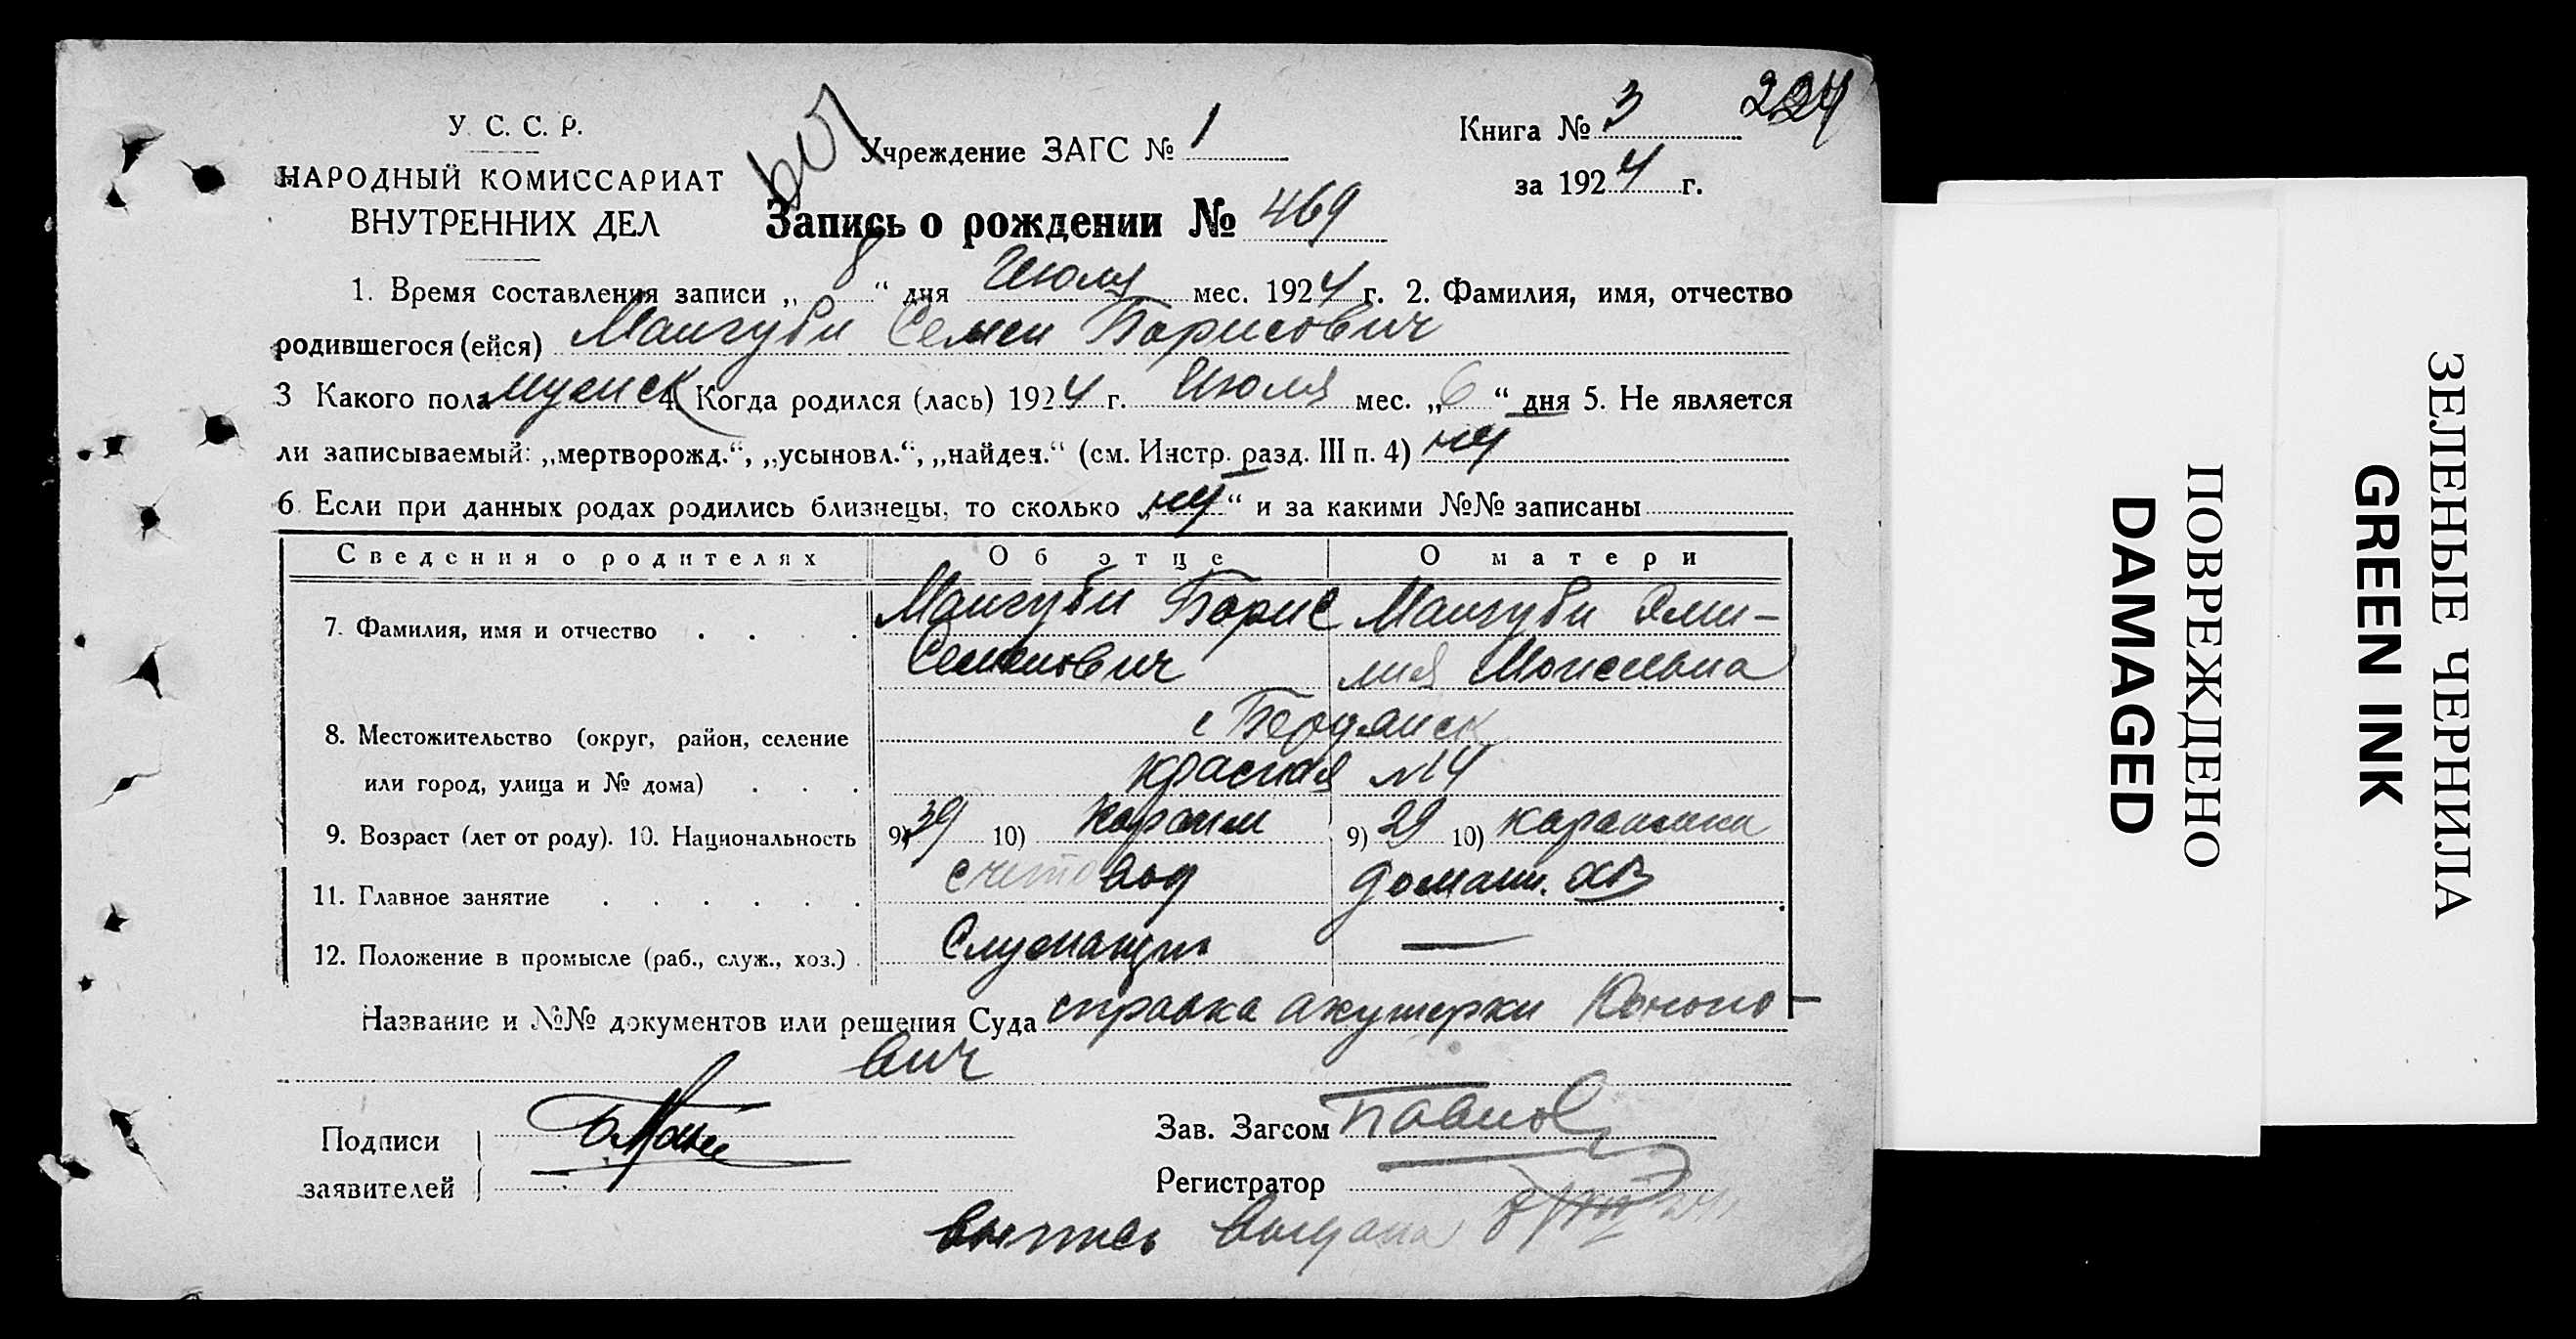 У. С. С. Р.
НАРОДНЫЙ КОМИССАРИАТ
ВНУТРЕННИХ ДЕЛ
Учреждение ЗАГС № 1
Книга № 3
за 1924 г.
Запись о рождении № 469
1. Время составления записи „ 8 “ дня Июля мес. 1924 г. 2. Фамилия, имя, отчество
родившегося (ейся) Мангуби Семен Борисович
3 Какого пола мужск 4. Когда родился (лась) 1924 г. Июля мес. „ 6 “ дня 5. Не является
ли записываемый: „мертворожд.“, „усыновл.“, „найден.“ (см. Инстр. разд. III п. 4)
6. Если при данных родах родились близнецы, то сколько „ “ и за какими №№ записаны
Сведения о родителях Об отце О матери
7. Фамилия, имя и отчество . . . . Мангуби Борис Семенович Мангуби Эми-
лия Моисеевна
8. Местожительство (округ, район, селение
или город, улица и № дома) . . . г Бердянск
Красная №14
9. Возраст (лет от роду). 10. Национальность 9) 39 10) Караим 9) 29 10) караимка
11. Главное занятие . . . . . . счетовод домашн. хв
12. Положение в промысле (раб., служ., хоз.) . Служащий —
Название и №№ документов или решения Суда справка акушерки Конono-
вич
Подписи
заявителей
Зав. Загсом Павлов
Регистратор
выпись выдана
ПОВРЕЖДЕНО
DAMAGED
ЗЕЛЕНЫЕ ЧЕРНИЛА
GREEN INK